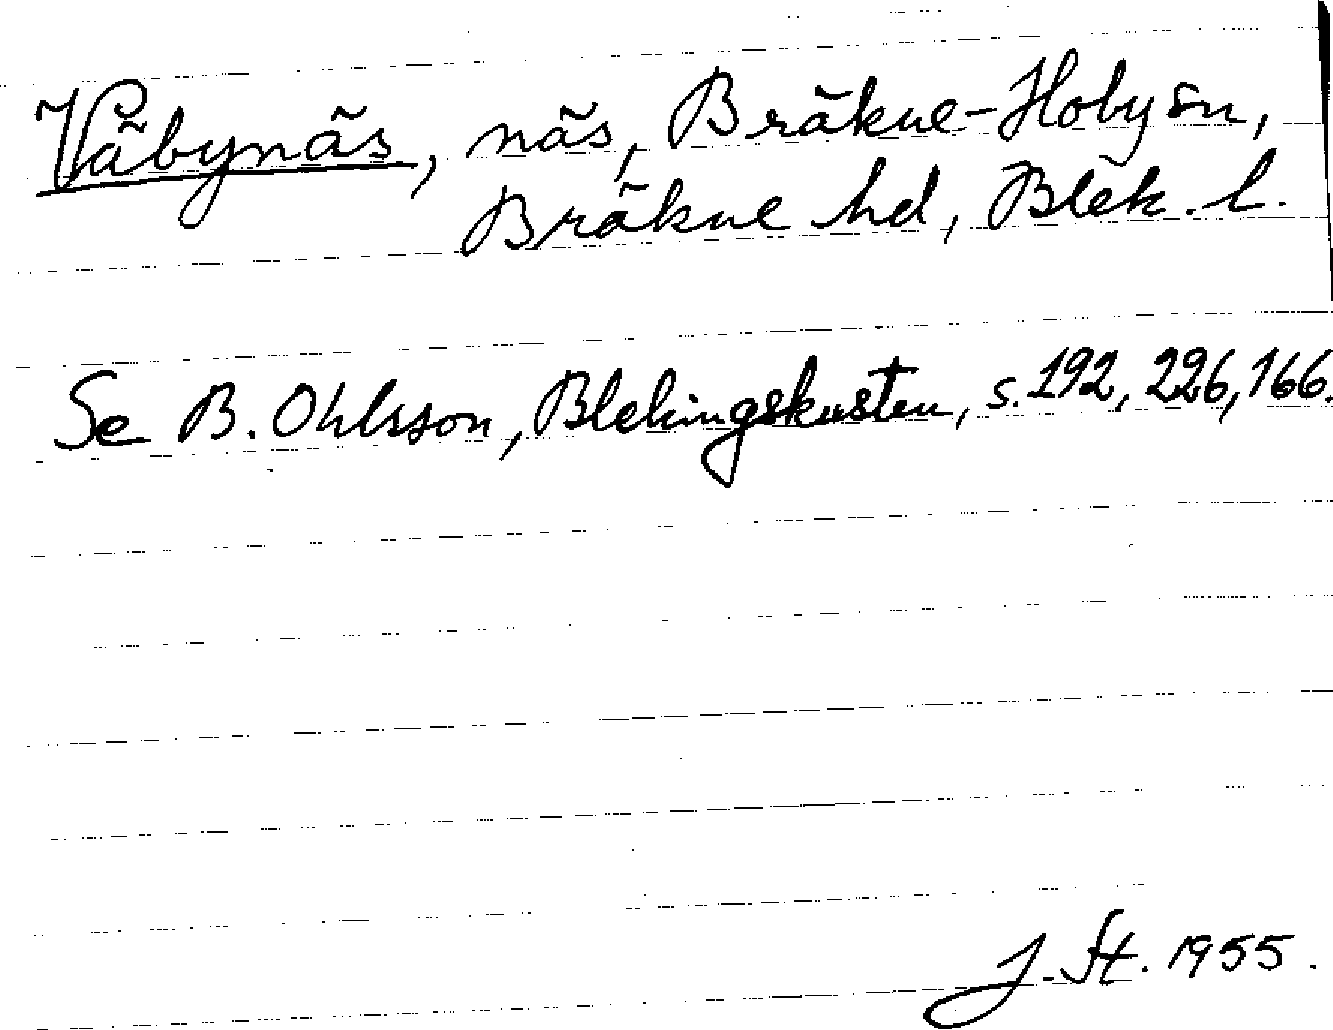 Väbynäs, näs, Bräkne-Hoby sn,
Bräkne hd, Blek. l.
Se B. Ohlsson, Blekingskusten, s. 192, 226, 166.
J. St. 1955.